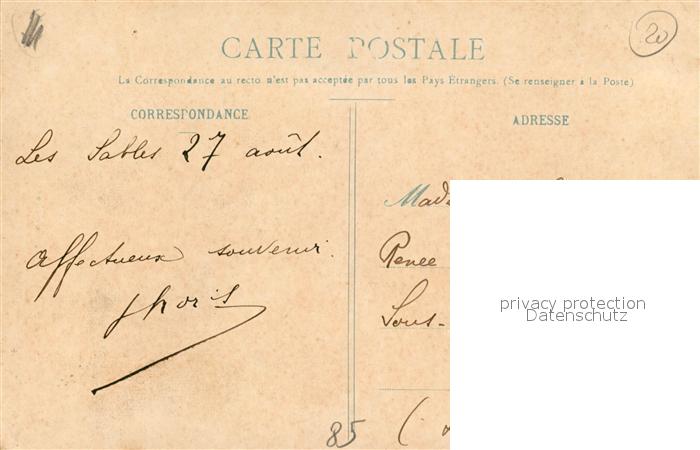 20
CARTE POSTALE
La Correspondance au recto n'est pas acceptée par tous les Pays Etrangers. (Se renseigner à la Poste)
CORRESPONDANCE
ADRESSE
Les Sables 27 août.
Affectueux souvenir.
Renee
Sous-
85
privacy protection
Datenschutz